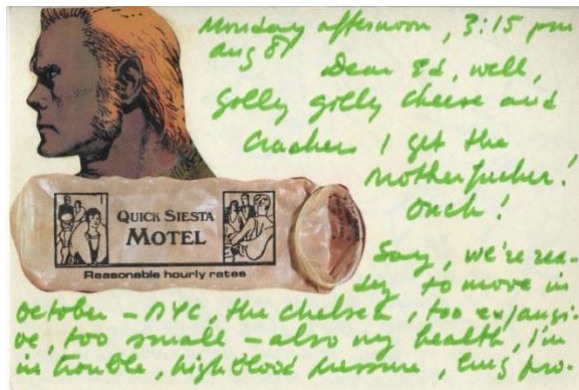 Monday afternoon, 3:15 pm
Aug 87
Dear Ed, well,
golly golly cheese and
crackers I get the
motherfucher!
ouch!
QUICK SIESTA
MOTEL
Reasonable hourly rates
Say, we're rea-
dy to move in
October – NYC, the Chelsea, too expansi-
ve, too small – also my health, I'm
in trouble, high blood pressure, lung pro-